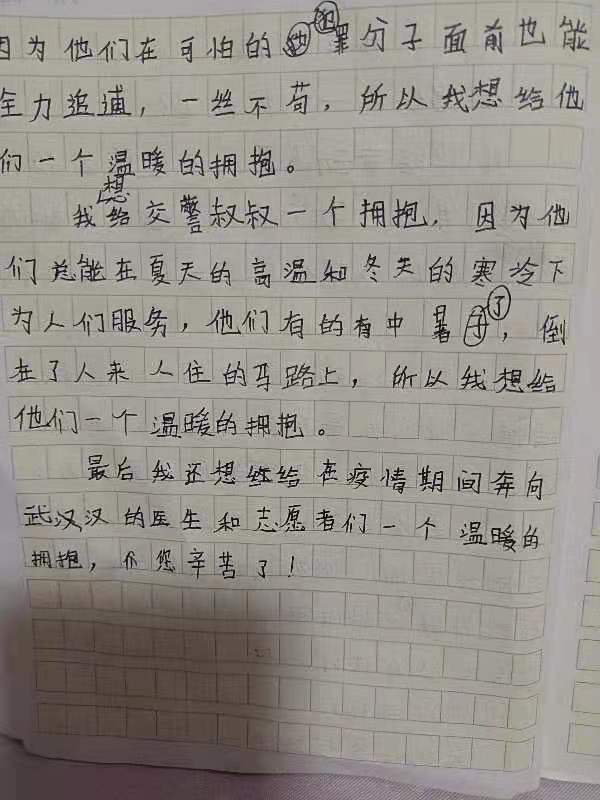 因为他们在可怕的犯罪分子面前也能
全力追逋，一丝不苟，所以我想给他
们一个温暖的拥抱。
我想给交警叔叔一个拥抱，因为他
们总能在夏天的高温和冬天的寒冷下
为人们服务，他们有的有中暑了，倒
在了人来人住的马路上，所以我想给
他们一个温暖的拥抱。
最后我还想给在疫情期间奔向
武汉汉的医生和志愿者们一个温暖的
拥抱，您辛苦了！